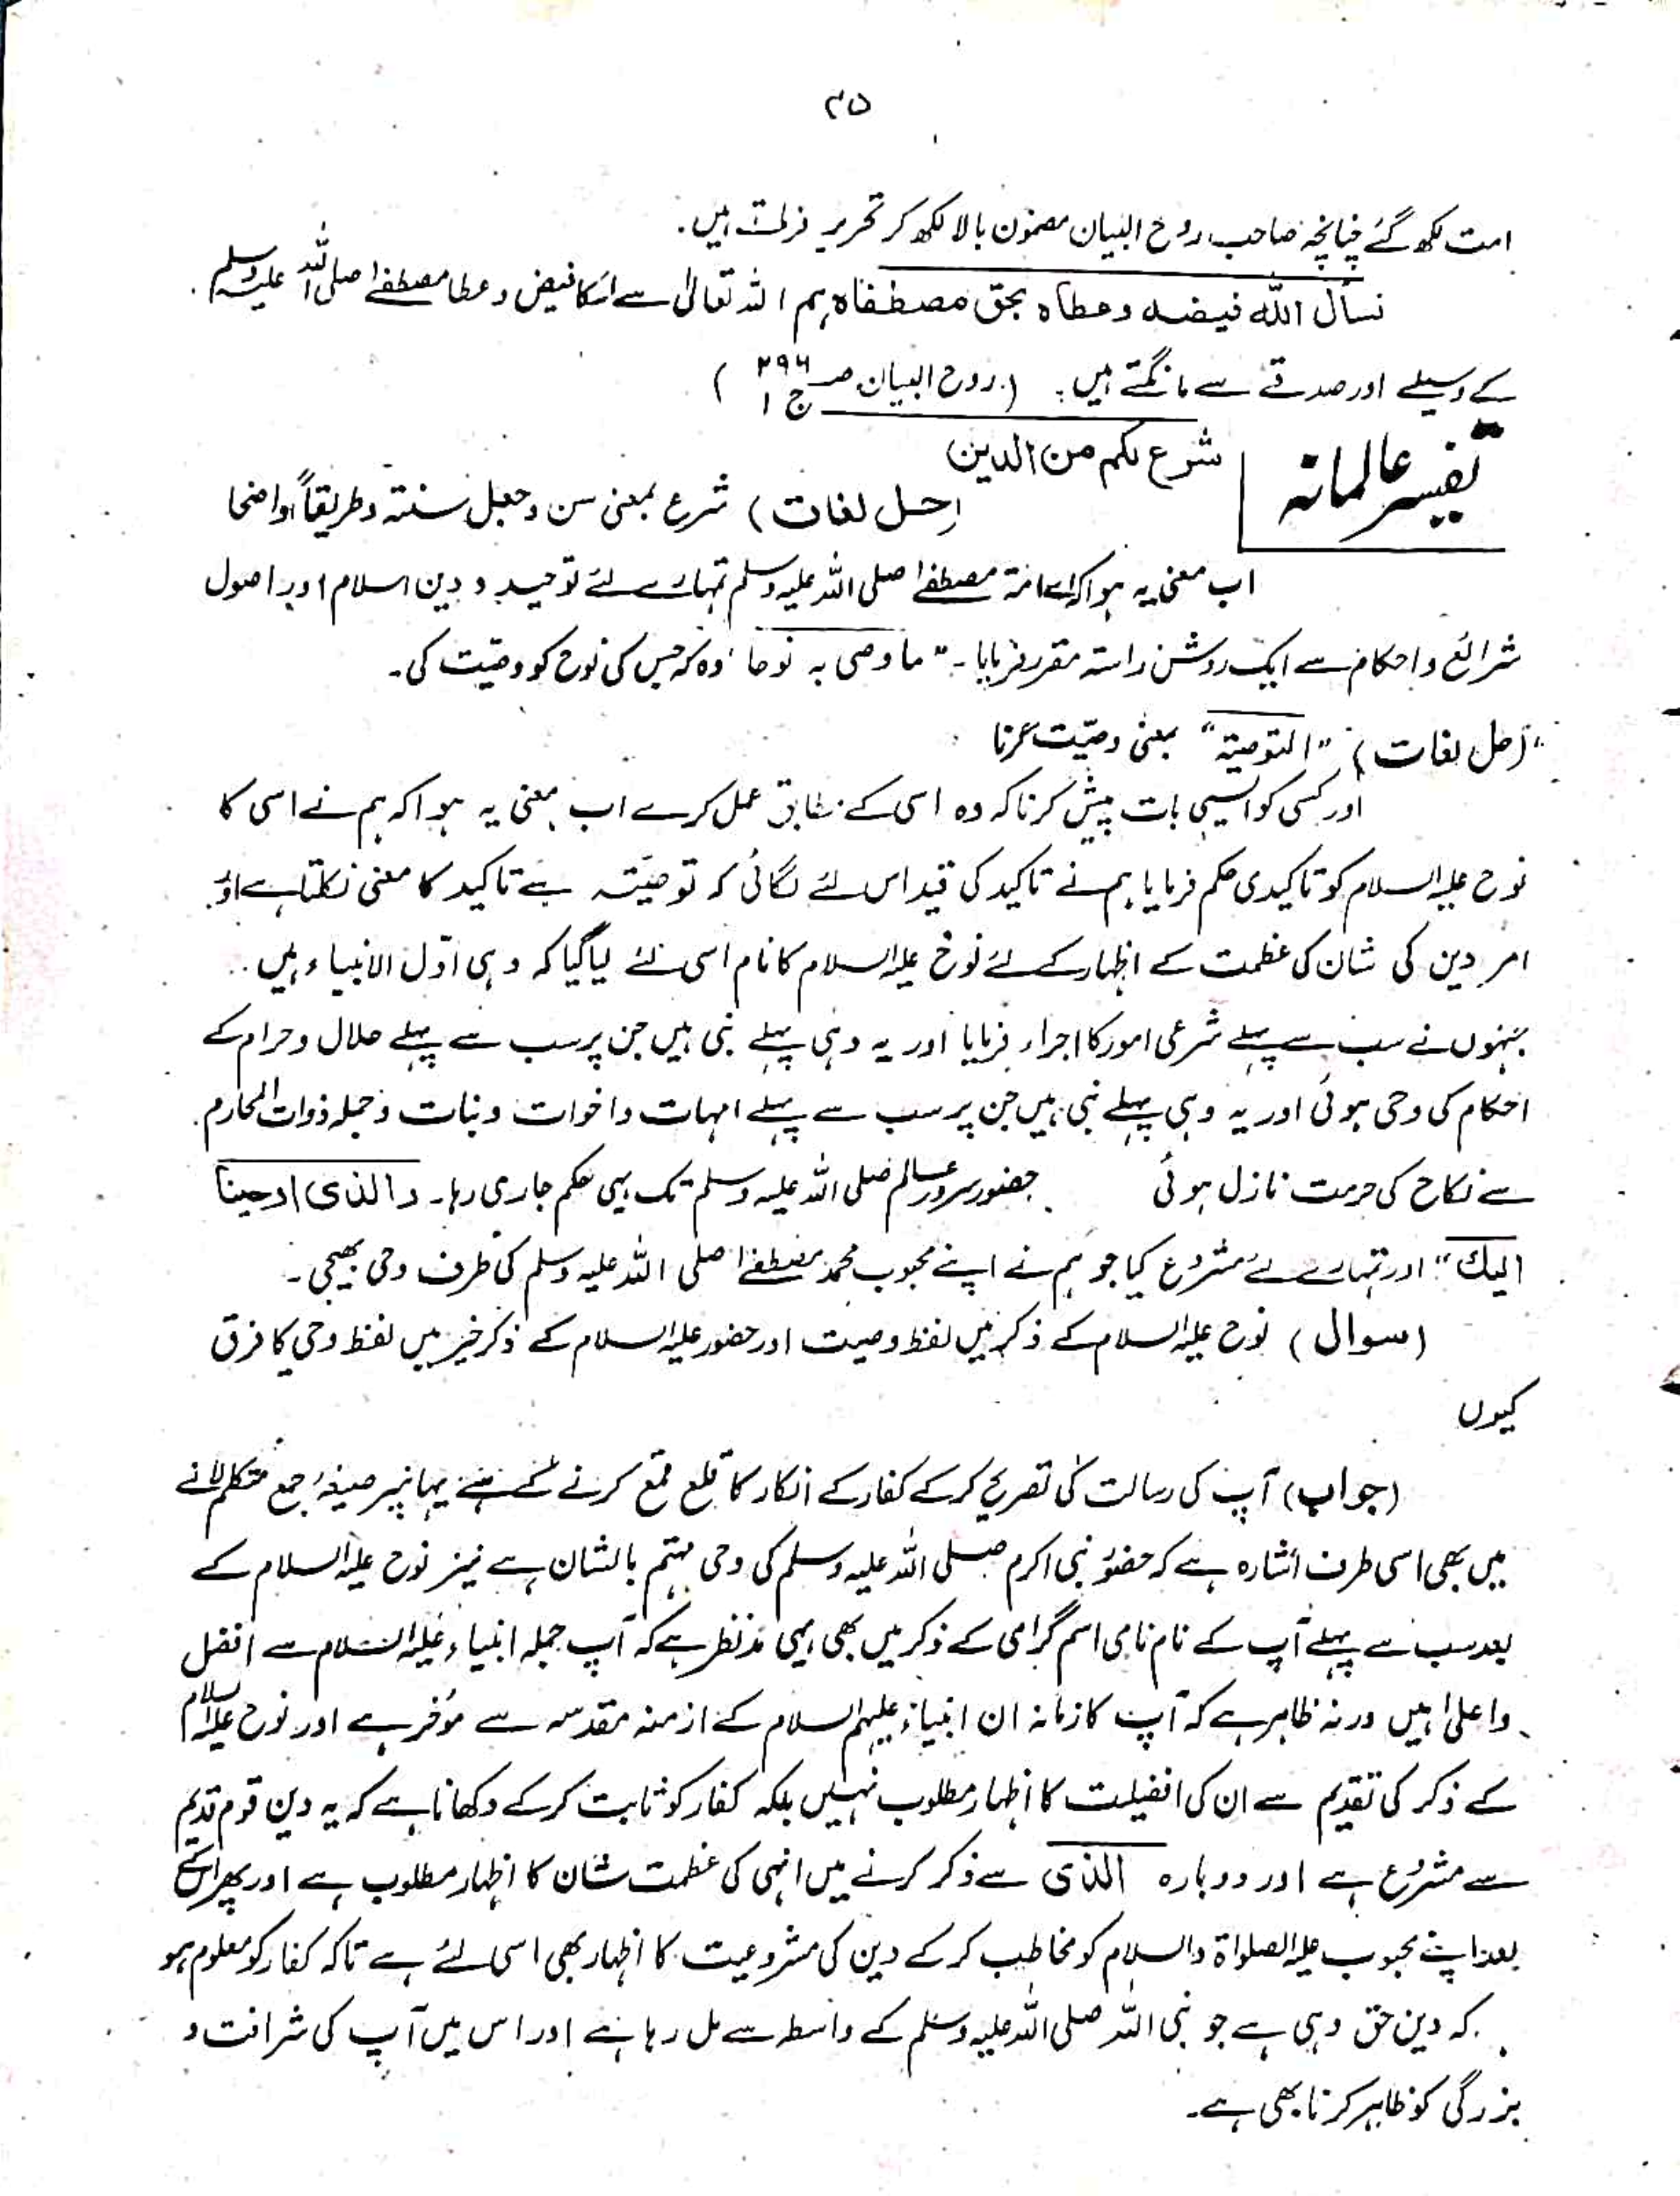 ۲۵
امت لکھ گئے چنانچہ صاحب روح البیان مضمون بالا لکھ کر تحریر فرماتے ہیں.
نسأل اللہ فیضہ وعطاہ بحق مصطفاہ ہم اللہ تعالیٰ سے اسکا فیض و عطا مصطفےٰ صلی اللہ علیہ وسلم
کے وسیلے اور صدقے سے مانگتے ہیں۔ (روح البیان صـ ۲۹۶ ج ۱)
تفسیر عالمانہ
شرع لکم من الدین
(حل لغات) شرع بمعنی سن وجعل سنتہ وطریقاً واضحا
اب معنی یہ ہوا کہ اے امتہ مصطفےٰ صلی اللہ علیہ وسلم تمہارے لئے توحید و دین اسلام اور اصول
شرائع و احکام سے ایک روشن راستہ مقرر فرمایا۔" ما وصی بہ نوحا وہ کہ جس کی نوح کو وصیّت کی۔
"(حل لغات) "التوصیۃ" بمعنی وصیّت کرنا
اور کسی کو ایسی بات پیش کرنا کہ وہ اسی کے مطابق عمل کرے اب معنی یہ ہوا کہ ہم نے اسی کا
نوح علیہ السلام کو تاکیدی حکم فرمایا ہم نے تاکید کی قید اس لئے لگائی کہ توصیتہ سے تاکید کا معنی نکلتا ہے اور
امر دین کی شان کی عظمت کے اظہار کے لئے نوح علیہ السلام کا نام اسی لئے لیا گیا کہ وہی اوّل الانبیاء ہیں..
جنہوں نے سب سے پہلے شرعی امور کا اجراء فرمایا اور یہ وہی پہلے نبی ہیں جن پر سب سے پہلے حلال و حرام کے
احکام کی وحی ہوئی اور یہ وہی پہلے نبی ہیں جن پر سب سے پہلے امہات و اخوات و بنات و جملہ ذوات المحارم
سے نکاح کی حرمت نازل ہوئی حضور سرور عالم صلی اللہ علیہ وسلم تک یہی حکم جاری رہا۔ والذی اوحینا
الیک" اور تمہارے لئے مشروع کیا جو ہم نے اپنے محبوب محمد مصطفےٰ صلی اللہ علیہ وسلم کی طرف وحی بھیجی۔
(سوال) نوح علیہ السلام کے ذکر میں لفظ وصیت اور حضور علیہ السلام کے ذکر خیر میں لفظ وحی کا فرق
کیوں
(جواب) آپ کی رسالت کی تصریح کرکے کفار کے انکار کا قلع قمع کرنے کے لئے یہانپر صیغۂ جمع متکلم لانے
میں بھی اسی طرف اشارہ ہے کہ حضور نبی اکرم صلی اللہ علیہ وسلم کی وحی مہتم بالشان ہے نیز نوح علیہ السلام کے
بعد سب سے پہلے آپ کے نام نامی اسم گرامی کے ذکر میں بھی یہی مدنظر ہے کہ آپ جملہ انبیاء علیہ السلام سے افضل
واعلیٰ ہیں ورنہ ظاہر ہے کہ آپ کا زمانہ ان انبیاء علیہم السلام کے ازمنہ مقدسہ سے مُؤخر ہے اور نوح علیہ السلام
کے ذکر کی تقدیم سے ان کی افضیلت کا اظہار مطلوب نہیں بلکہ کفار کو ثابت کرکے دکھانا ہے کہ یہ دین قوم قدیم
سے مشروع ہے اور دوبارہ الذی سے ذکر کرنے میں انہی کی عظمت شان کا اظہار مطلوب ہے اور پھر اسکے
بعد اپنے محبوب علیہ الصلواۃ والسلام کو مخاطب کرکے دین کی مشروعیت کا اظہار بھی اسی لئے ہے تاکہ کفار کو معلوم ہو
کہ دین حق وہی ہے جو نبی اللہ صلی اللہ علیہ وسلم کے واسطہ سے مل رہا ہے اور اس میں آپ کی شرافت و
بزرگی کو ظاہر کرنا بھی ہے۔